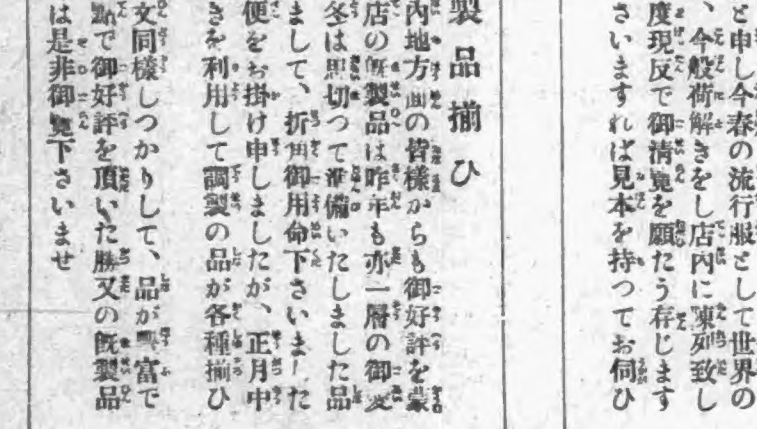 と申し今春の流行服として世界の
、今般荷解きをし店內に陳列致し
度現反で御淸覽を願たう存じます
さいますれば見本を持つてお伺ひ
製品揃ひ
內地方面の皆樣からも御好評を蒙
店の既製品は昨年も亦一層の御愛
冬は思切つて準備いたしました品
まして、折角御用命下さいました
便をお掛け申しましたが、正月中
きを利用して調製の品が各種揃ひ
文同樣しつかりして、品が豐富で
點で御好評を頂いた勝又の既製品
は是非御覽下さいませ